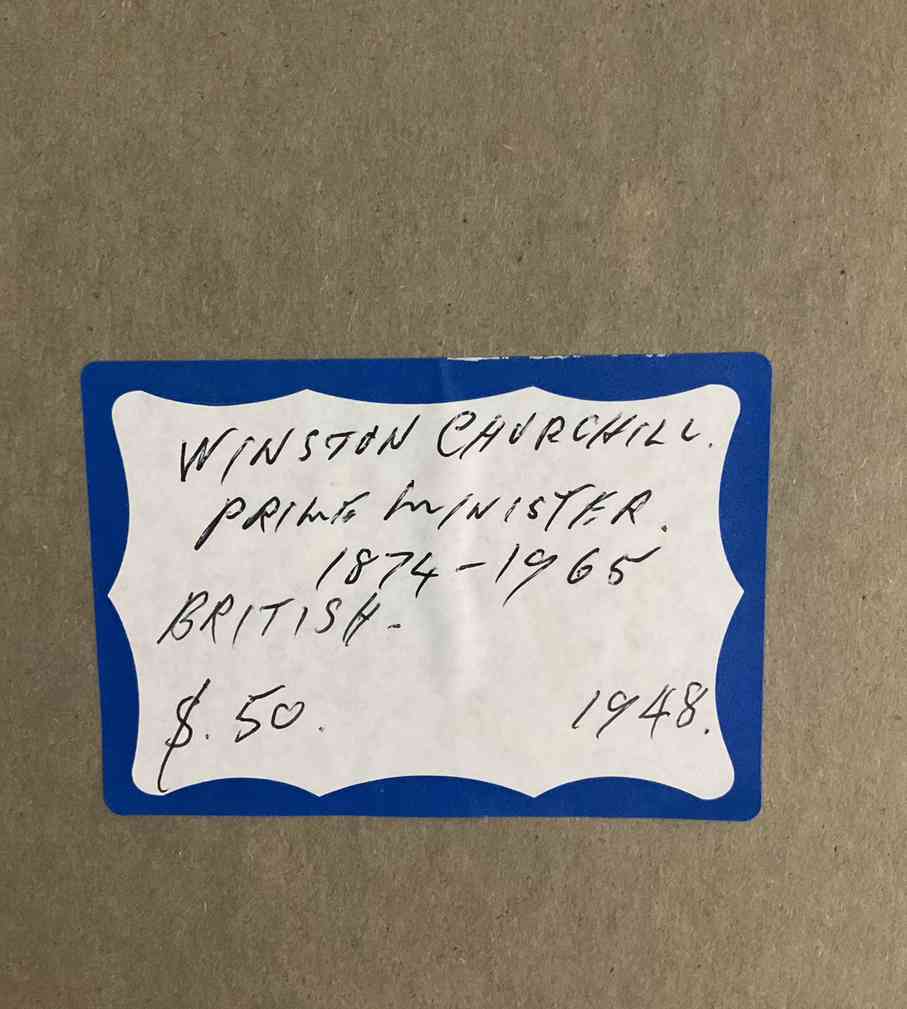 WINSTON CHURCHILL.
PRIME MINISTER.
1874-1965
BRITISH.
$.50. 1948.